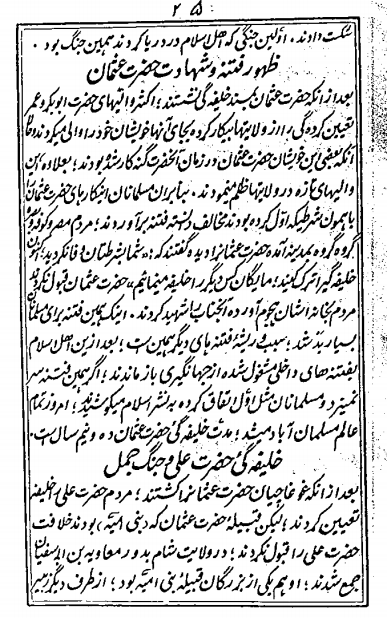 ۲۵
شکست دادند. اوّلین جنگی که اهل اسلام در دریا کردند همین جنگ بود.
ظهور فتنه و شهادت حضرت عثمان
بعد از آنکه حضرت عثمان بمسند خلیفه گی نشستند؛ اکثر والیهای حضرت ابوبکر و عمر
تعیین کرده گی را از ولایتها بیکار کرده بجای آنها خویشان خود را والی میکردند؛ حال
آنکه بعضی این خویشان حضرت عثمان در زمان آنحضرت گنه کار شده بودند؛ بعلاوه این
والیهای تازه در ولایتها ظلم مینمودند. بنابران مسلمانان این کارهای حضرت عثمان را
با همون شرطیکه اوّل کرده بودند مخالف دانسته فتنه برآوردند؛ مردم مصر و کوفه
گروه گروه بمدینه آمده حضرت عثمانرا دیده گفتند که: «شما بشرطتان وفا نکردید؛ اکنون
خلیفه گیرا ترک کنید؛ ما یگان کس دیگر را خلیفه مینمائیم» حضرت عثمان قبول نکردند
مردم بخانه ایشان هجوم آورده آنجناب را شهید کردند. اینک همین فتنه برای مسلمانان
بسیار بد شد؛ سبب و ریشهٔ فتنه های دیگر همین است؛ بعد ازین اهل اسلام
بفتنه های داخلی مشغول شده از جهانگیری باز ماندند؛ اگر همین فتنه سر
نمیزد و مسلمانان مثل اوّل اتفاق کرده به نشر اسلام میکوشیدند؛ امروز تمام
عالم مسلمان آباد میشد؛ مدّت خلیفه گی حضرت عثمان ده و نیم سال است.
خلیفه گی حضرت علی و جنگ جمل
بعد از آنکه غوغاچیان حضرت عثمانرا کشتند؛ مردم حضرت علی را خلیفه
تعیین کردند؛ لیکن قبیلهٔ حضرت عثمان که «بنی امیّه» بودند خلافت
حضرت علی را قبول نکردند؛ در ولایت شام بدور معاویه بن ابوسفیان
جمع شدند؛ او هم یکی از بزرگان قبیلهٔ بنی امیّه بود؛ از طرف دیگر زبیر